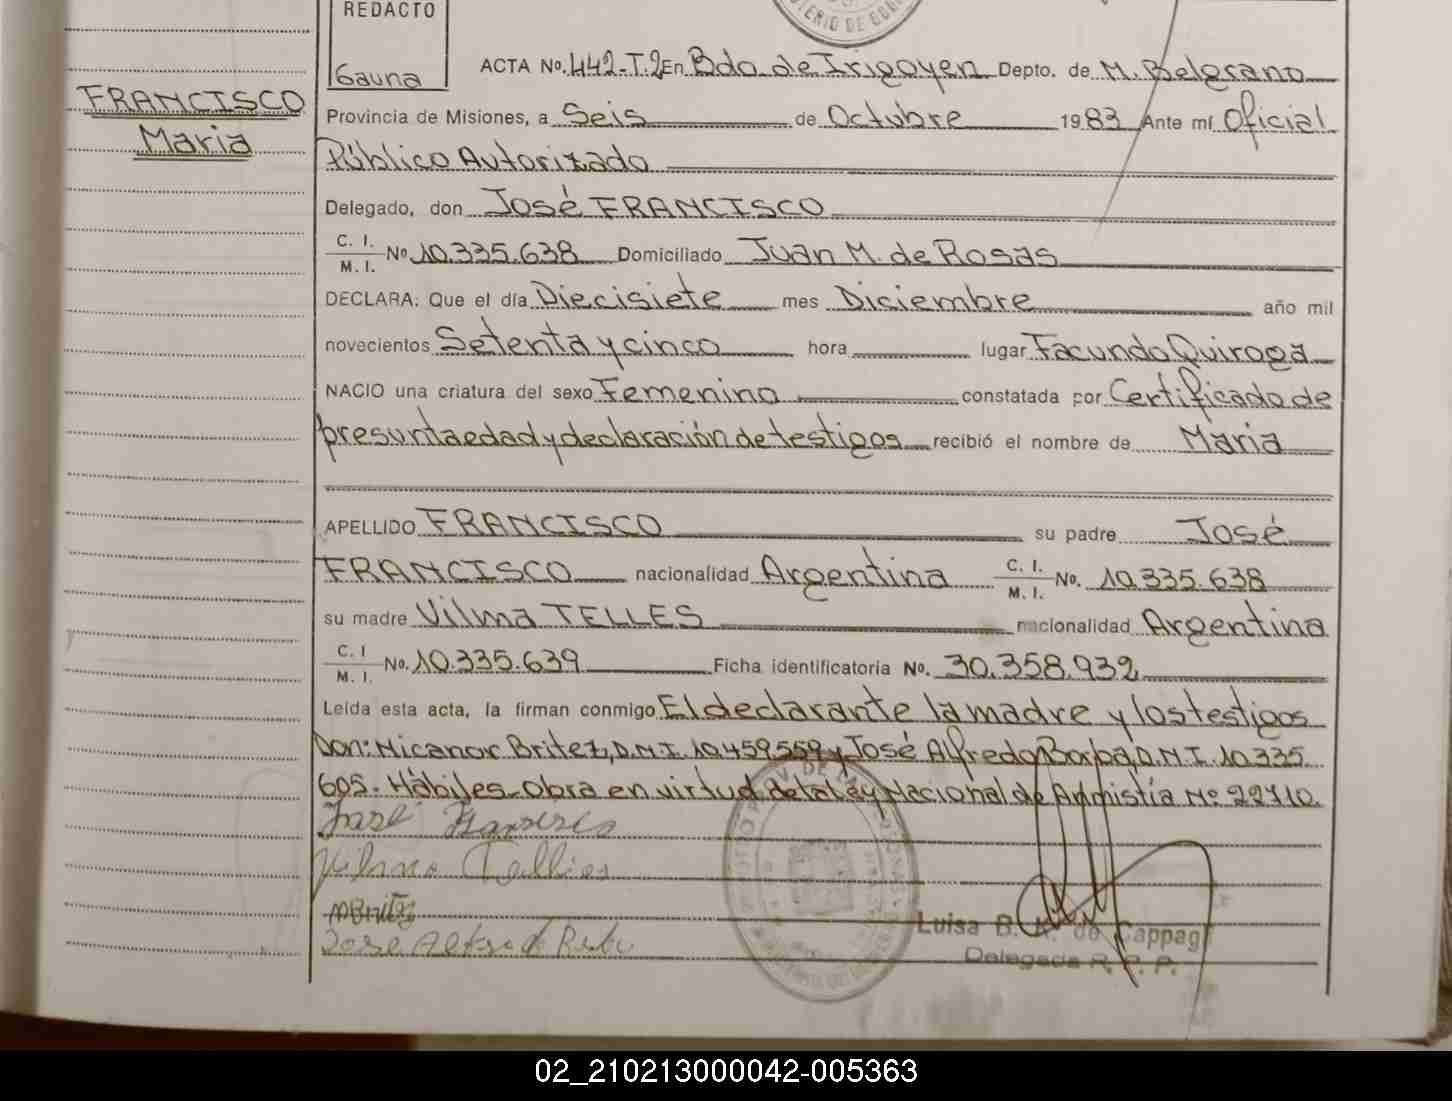 REDACTO
Gauna
FRANCISCO
Maria
ACTA No. 442-T.2 En Bdo. de Irigoyen Depto. de M. Belgrano
Provincia de Misiones, a Seis de Octubre 1983 Ante mí Oficial
Público Autorizado
Delegado, don José FRANCISCO
C. I.
M. I. No 10.335.638 Domiciliado Juan M. de Rosas
DECLARA: Que el día Diecisiete mes Diciembre año mil
novecientos Setenta y cinco hora lugar Facundo Quiroga
NACIO una criatura del sexo Femenino constatada por Certificado de
presunta edad y declaración de testigos recibió el nombre de Maria
APELLIDO FRANCISCO su padre José
FRANCISCO nacionalidad Argentina C. I. M. I. No. 10.335.638
su madre Vilma TELLES nacionalidad Argentina
C. I M. I. No. 10.335.639 Ficha identificatoria No. 30.358.932
Leída esta acta, la firman conmigo El declarante la madre y los testigos
Don: Nicanor Britez, D.N.I. 10.459.559 y José Alfredo Borba, D.N.I. 10.335.
605. Hábiles. Obra en virtud de la ley Nacional de Amnistía No. 22710.
José
Vilma
José
Luisa B. de Cappag
Delegada R. C. P.
02_210213000042-005363